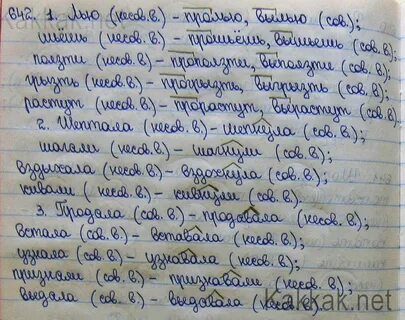 842. 1. Лью (несов. в.) - пролью, вылью (сов.);
шьёшь (несов. в.) - прошьёшь, вышьешь (сов. в.);
ползти (несов. в.) - проползти, выползти (сов. в.);
грызть (несов. в.) - прогрызть, выгрызть (сов. в.);
растут (несов. в.) - прорастут, вырастут (сов. в.)
2. Шептала (несов. в.) - шепнула (сов. в.);
шагали (несов. в.) - шагнули (сов. в.);
вздыхала (несов. в.) - вздохнула (сов. в.);
кивали (несов. в.) - кивнули (сов. в.)
3. Продала (сов. в.) - продавала (несов. в.);
встала (сов. в.) - вставала (несов. в.);
узнала (сов. в.) - узнавала (несов. в.);
признали (сов. в.) - признавали (несов. в.);
выдала (сов. в.) - выдавала (несов. в.).
Kakkak.net